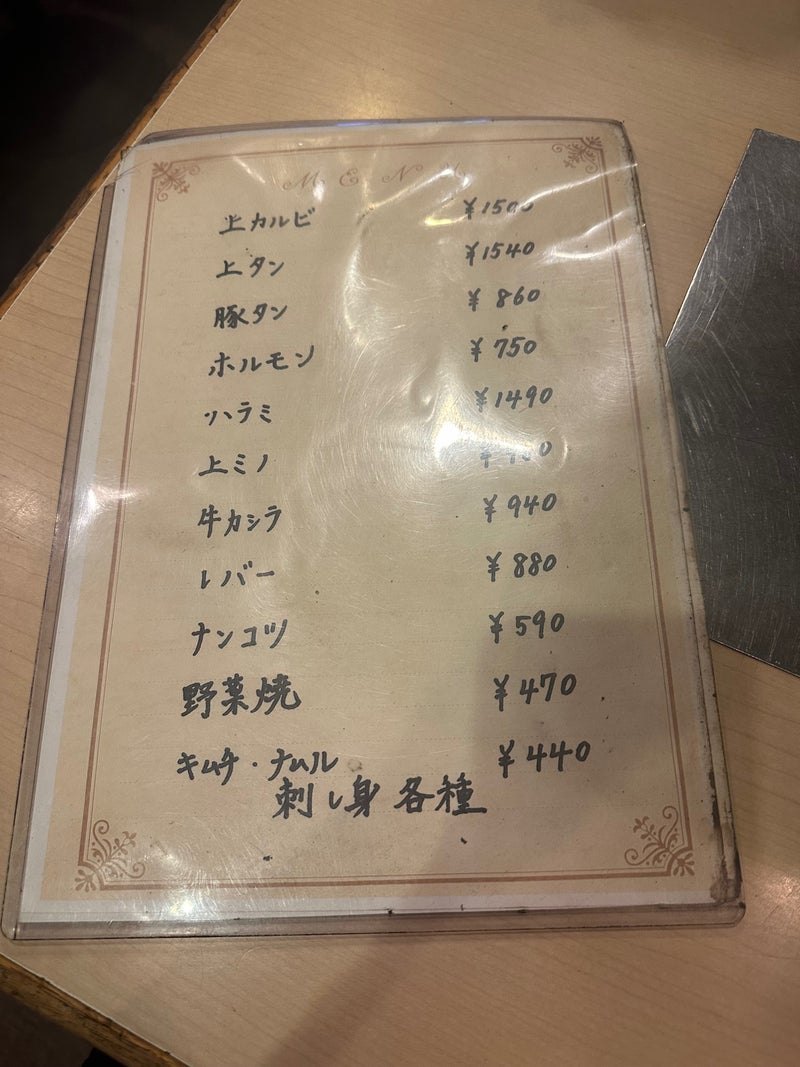 MENU
上カルビ ¥1500
上タン ¥1540
豚タン ¥860
ホルモン ¥750
ハラミ ¥1490
上ミノ
牛カシラ ¥940
レバー ¥880
ナンコツ ¥590
野菜焼 ¥470
キムチ・ナムル ¥440
刺し身 各種